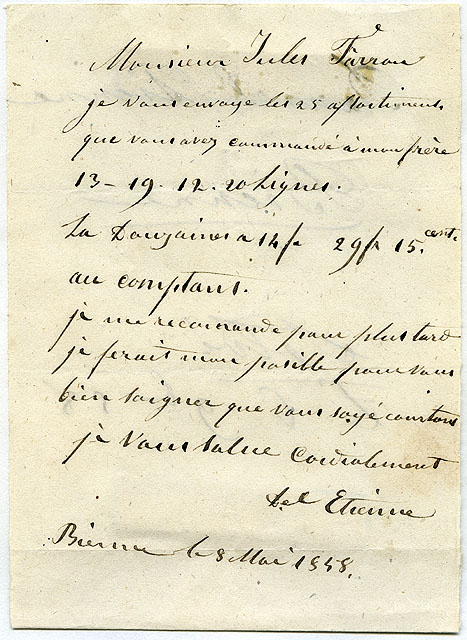 Monsieur Jules
je vous envoye les 25 assortiments
que vous avez commandé à mon frère
13 - 19. 12. 20 Lignes.
La Douzaines a 14 f 29 f 15. cent.
au comptant.
je me recomande pour plus tard
je ferait mon posible pour vous
bien soigner que vous soyé countans
je vous salue Cordialement
Etienne
Bienne le 8 Mai 1858.